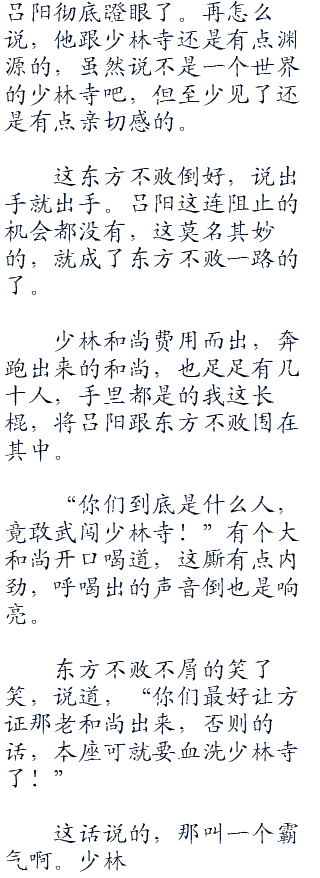 吕阳彻底瞪眼了。再怎么
说，他跟少林寺还是有点渊
源的，虽然说不是一个世界
的少林寺吧，但至少见了还
是有点亲切感的。
这东方不败倒好，说出
手就出手。吕阳这连阻止的
机会都没有，这莫名其妙
的，就成了东方不败一路的
了。
少林和尚费用而出，奔
跑出来的和尚，也足足有几
十人，手里都是的我这长
棍，将吕阳跟东方不败围在
其中。
“你们到底是什么人，
竟敢武闯少林寺！”有个大
和尚开口喝道，这厮有点内
劲，呼喝出的声音倒也是响
亮。
东方不败不屑的笑了
笑，说道，“你们最好让方
证那老和尚出来，否则的
话，本座可就要血洗少林寺
了！”
这话说的，那叫一个霸
气啊。少林